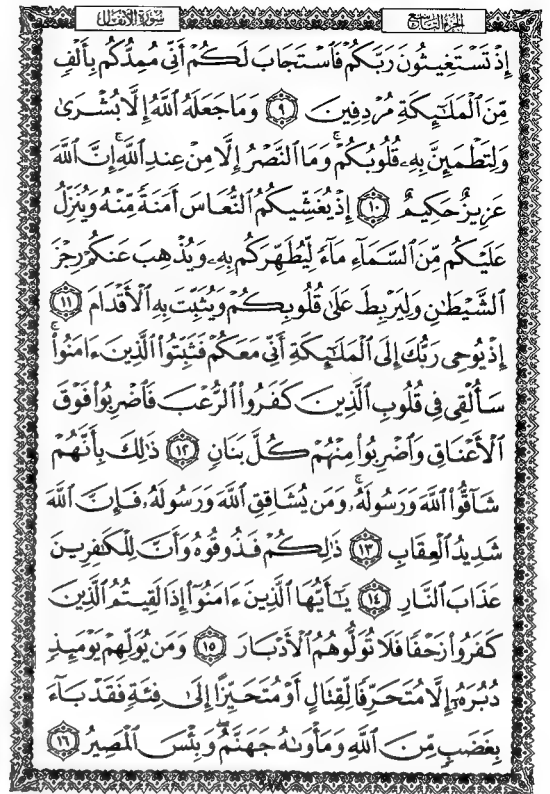 الجزء التاسع
سورة الأنفال
إِذْ تَسْتَغِيثُونَ رَبَّكُمْ فَٱسْتَجَابَ لَكُمْ أَنِّى مُمِدُّكُم بِأَلْفٍ
مِّنَ ٱلْمَلَـٰٓئِكَةِ مُرْدِفِينَ ٩ وَمَا جَعَلَهُ ٱللَّهُ إِلَّا بُشْرَىٰ
وَلِتَطْمَئِنَّ بِهِۦ قُلُوبُكُمْ ۚ وَمَا ٱلنَّصْرُ إِلَّا مِنْ عِندِ ٱللَّهِ ۚ إِنَّ ٱللَّهَ
عَزِيزٌ حَكِيمٌ ١٠ إِذْ يُغَشِّيكُمُ ٱلنُّعَاسَ أَمَنَةً مِّنْهُ وَيُنَزِّلُ
عَلَيْكُم مِّنَ ٱلسَّمَآءِ مَآءً لِّيُطَهِّرَكُم بِهِۦ وَيُذْهِبَ عَنكُمْ رِجْزَ
ٱلشَّيْطَـٰنِ وَلِيَرْبِطَ عَلَىٰ قُلُوبِكُمْ وَيُثَبِّتَ بِهِ ٱلْأَقْدَامَ ١١
إِذْ يُوحِى رَبُّكَ إِلَى ٱلْمَلَـٰٓئِكَةِ أَنِّى مَعَكُمْ فَثَبِّتُوا۟ ٱلَّذِينَ ءَامَنُوا۟ ۚ
سَأُلْقِى فِى قُلُوبِ ٱلَّذِينَ كَفَرُوا۟ ٱلرُّعْبَ فَٱضْرِبُوا۟ فَوْقَ
ٱلْأَعْنَاقِ وَٱضْرِبُوا۟ مِنْهُمْ كُلَّ بَنَانٍ ١٢ ذَٰلِكَ بِأَنَّهُمْ
شَآقُّوا۟ ٱللَّهَ وَرَسُولَهُۥ ۚ وَمَن يُشَاقِقِ ٱللَّهَ وَرَسُولَهُۥ فَإِنَّ ٱللَّهَ
شَدِيدُ ٱلْعِقَابِ ١٣ ذَٰلِكُمْ فَذُوقُوهُ وَأَنَّ لِلْكَـٰفِرِينَ
عَذَابَ ٱلنَّارِ ١٤ يَـٰٓأَيُّهَا ٱلَّذِينَ ءَامَنُوٓا۟ إِذَا لَقِيتُمُ ٱلَّذِينَ
كَفَرُوا۟ زَحْفًا فَلَا تُوَلُّوهُمُ ٱلْأَدْبَارَ ١٥ وَمَن يُوَلِّهِمْ يَوْمَئِذٍ
دُبُرَهُۥٓ إِلَّا مُتَحَرِّفًا لِّقِتَالٍ أَوْ مُتَحَيِّزًا إِلَىٰ فِئَةٍ فَقَدْ بَآءَ
بِغَضَبٍ مِّنَ ٱللَّهِ وَمَأْوَىٰهُ جَهَنَّمُ ۖ وَبِئْسَ ٱلْمَصِيرُ ١٦